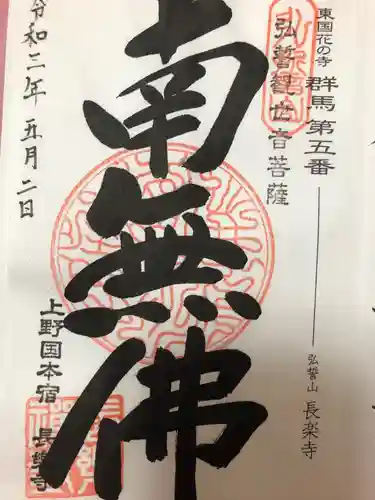 東国花の寺 群馬 第五番
弘誓山 長楽寺
弘誓観世音菩薩
南無佛
上野国本宿 長楽寺
令和三年五月二日